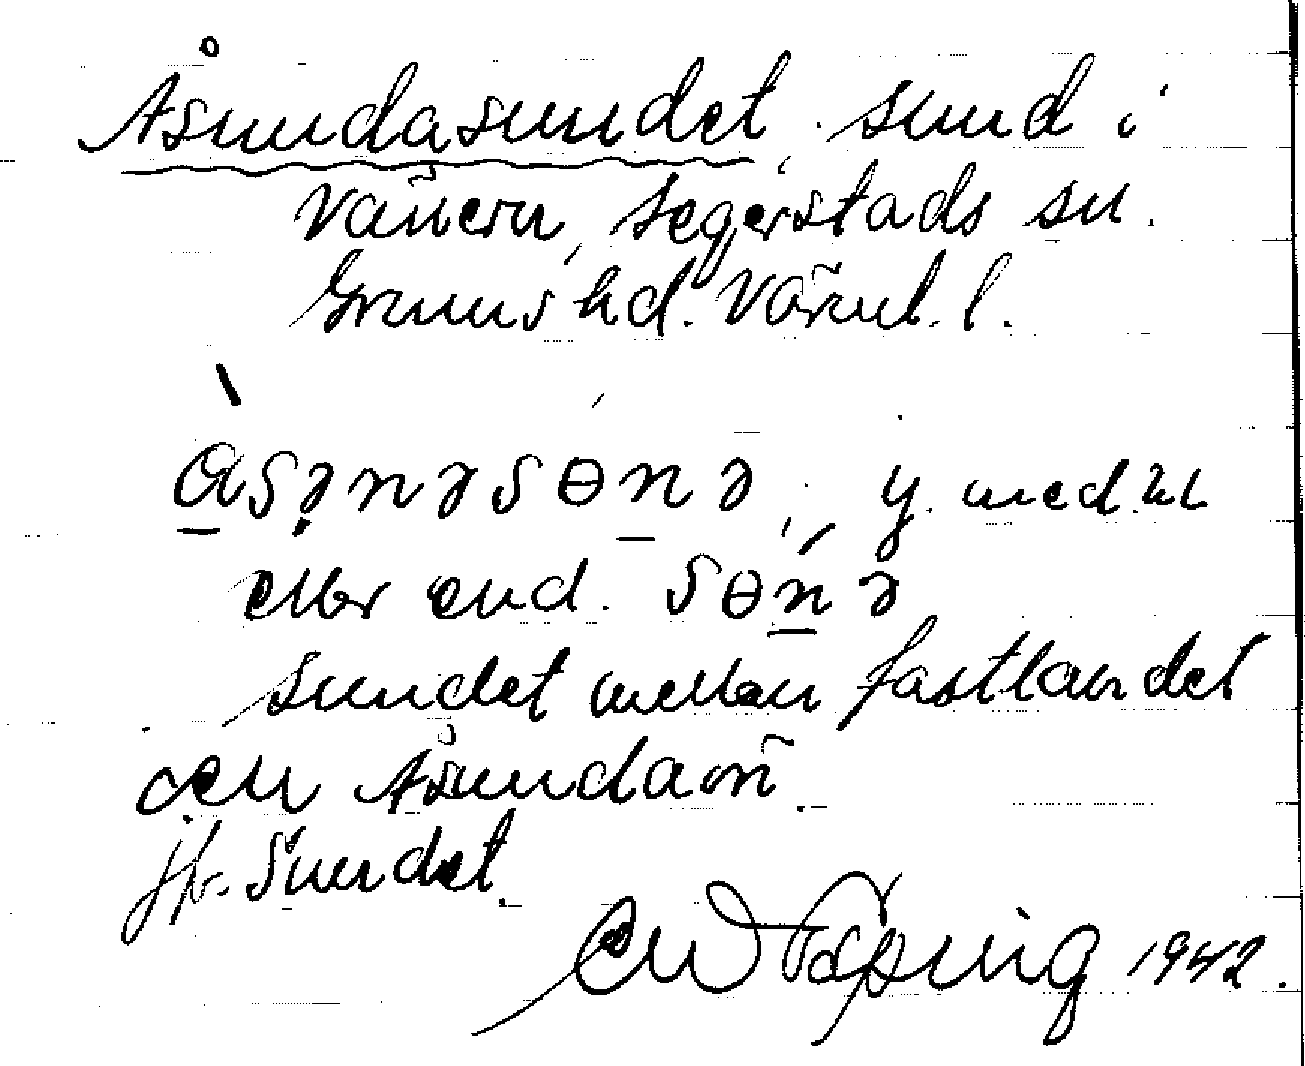 Åsundasundet, sund i
Vänern, Segerstads sn.
Grums hd. Värml. l.
åsənəsɵnə, y. med.ål
eller end. sɵnə
sundet mellan fastlandet
och Åsundaön.
jfr Sundet.
1942.